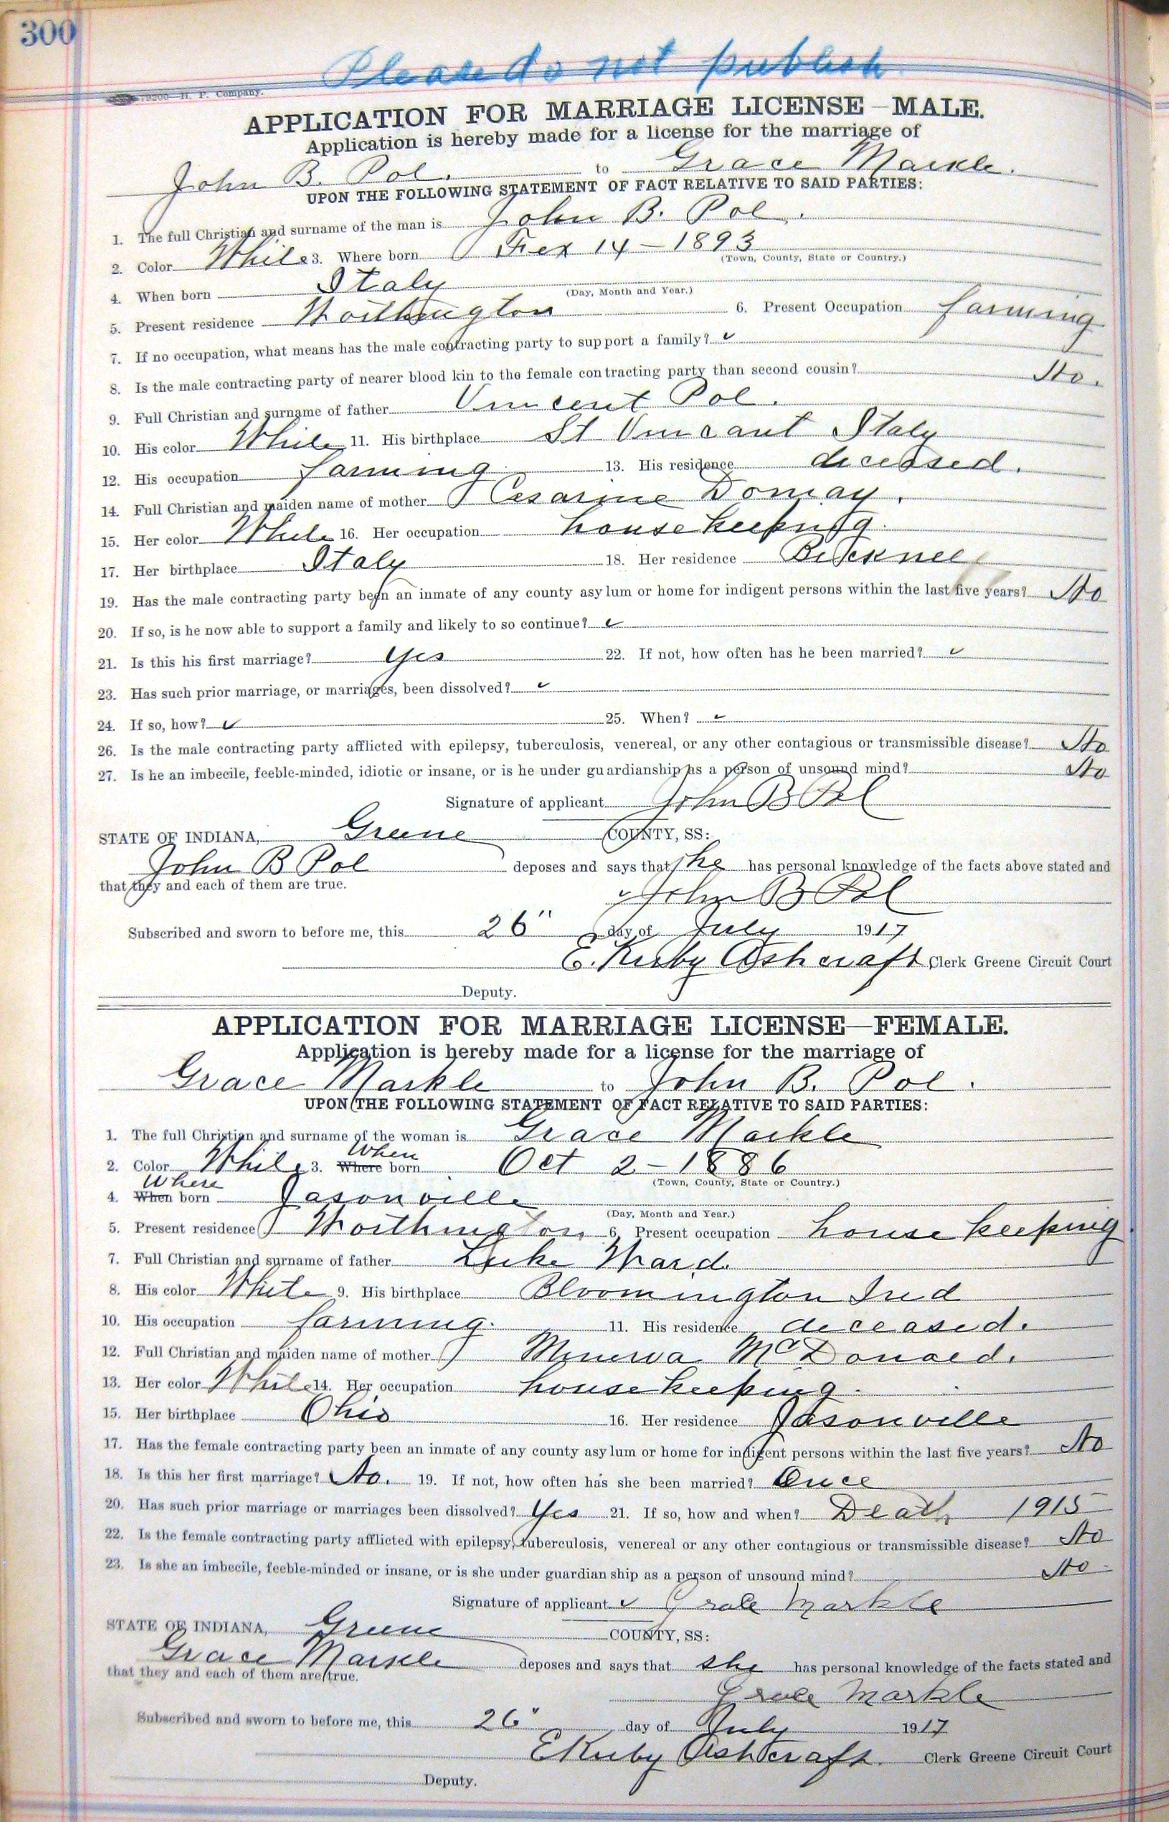 300
Please do not publish
79200—H. P. Company.
APPLICATION FOR MARRIAGE LICENSE—MALE.
Application is hereby made for a license for the marriage of
John B. Pol. to Grace Markle.
UPON THE FOLLOWING STATEMENT OF FACT RELATIVE TO SAID PARTIES:
1. The full Christian and surname of the man is John B. Pol.
2. Color White 3. Where born Fex 14 - 1893
(Town, County, State or Country.)
4. When born Italy
(Day, Month and Year.)
5. Present residence Worthington 6. Present Occupation farming
7. If no occupation, what means has the male contracting party to support a family? ✓
8. Is the male contracting party of nearer blood kin to the female contracting party than second cousin? No.
9. Full Christian and surname of father Vincent Pol.
10. His color White 11. His birthplace St Vincant Italy
12. His occupation farming 13. His residence deceased.
14. Full Christian and maiden name of mother Cesarine Domay.
15. Her color White 16. Her occupation housekeeping.
17. Her birthplace Italy 18. Her residence Bicknell
19. Has the male contracting party been an inmate of any county asylum or home for indigent persons within the last five years? No
20. If so, is he now able to support a family and likely to so continue? ✓
21. Is this his first marriage? yes 22. If not, how often has he been married? ✓
23. Has such prior marriage, or marriages, been dissolved? ✓
24. If so, how? ✓ 25. When? ✓
26. Is the male contracting party afflicted with epilepsy, tuberculosis, venereal, or any other contagious or transmissible disease? No
27. Is he an imbecile, feeble-minded, idiotic or insane, or is he under guardianship as a person of unsound mind? No
Signature of applicant John B Pol
STATE OF INDIANA, Greene COUNTY, SS:
John B Pol deposes and says that he has personal knowledge of the facts above stated and
that they and each of them are true.
✓ John B Pol
Subscribed and sworn to before me, this 26" day of July 1917
E. Kirby Ashcraft Clerk Greene Circuit Court
Deputy.
APPLICATION FOR MARRIAGE LICENSE—FEMALE.
Application is hereby made for a license for the marriage of
Grace Markle to John B. Pol.
UPON THE FOLLOWING STATEMENT OF FACT RELATIVE TO SAID PARTIES:
1. The full Christian and surname of the woman is Grace Markle
2. Color White 3. Where When born Oct 2 - 1886
(Town, County, State or Country.)
4. When Where born Jasonville
(Day, Month and Year.)
5. Present residence Worthington. 6. Present occupation housekeeping.
7. Full Christian and surname of father Luke Ward.
8. His color White 9. His birthplace Bloomington Ind
10. His occupation farming. 11. His residence deceased.
12. Full Christian and maiden name of mother Minerva McDonald.
13. Her color White 14. Her occupation housekeeping.
15. Her birthplace Ohio 16. Her residence Jasonville
17. Has the female contracting party been an inmate of any county asylum or home for indigent persons within the last five years? No
18. Is this her first marriage? No. 19. If not, how often has she been married? Once
20. Has such prior marriage or marriages been dissolved? Yes 21. If so, how and when? Death, 1915
22. Is the female contracting party afflicted with epilepsy, tuberculosis, venereal or any other contagious or transmissible disease? No
23. Is she an imbecile, feeble-minded or insane, or is she under guardianship as a person of unsound mind? No
Signature of applicant ✓ Grace Markle
STATE OF INDIANA, Greene COUNTY, SS:
Grace Markle deposes and says that she has personal knowledge of the facts stated and
that they and each of them are true.
Grace Markle
Subscribed and sworn to before me, this 26" day of July 1917
E Kirby Ashcraft. Clerk Greene Circuit Court
Deputy.